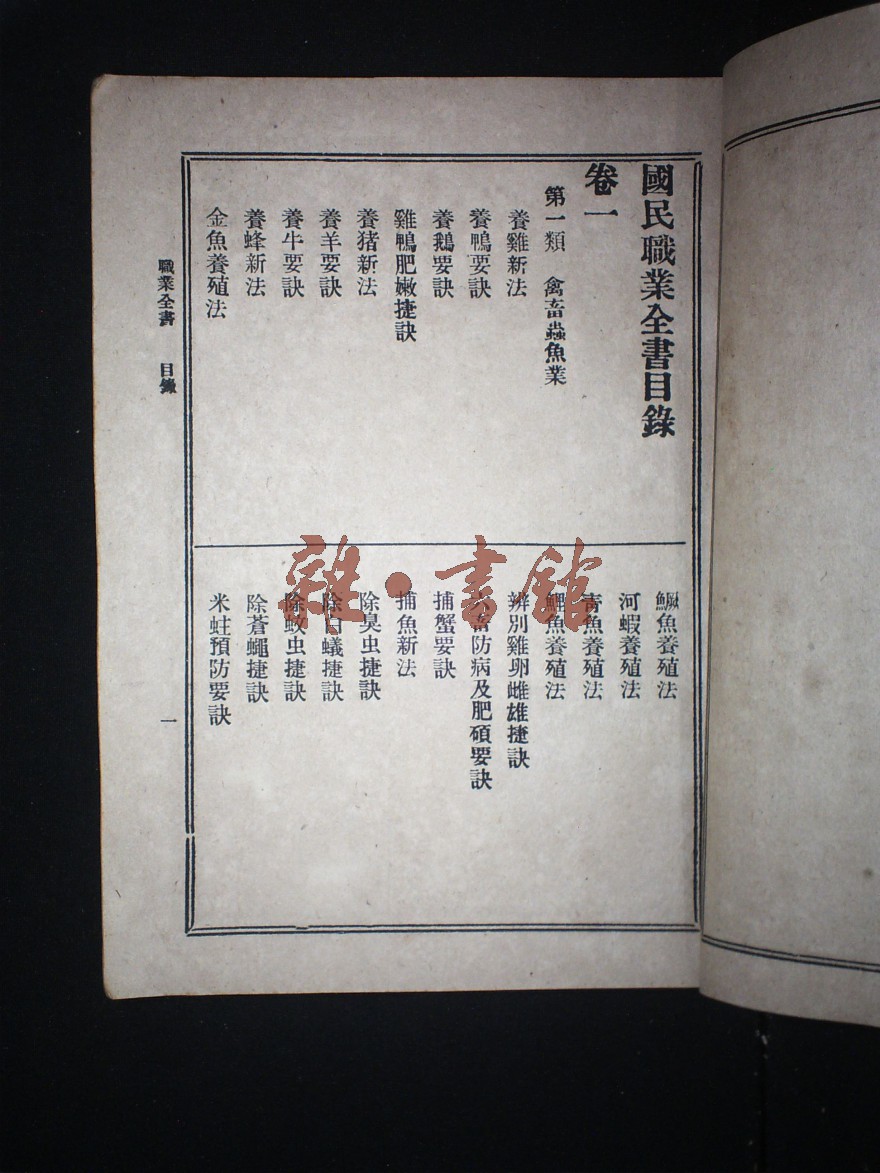 國民職業全書目錄
卷一
第一類　禽畜蟲魚業
養雞新法
養鴨要訣
養鵝要訣
雞鴨肥嫩捷訣
養猪新法
養羊要訣
養牛要訣
養蜂新法
金魚養殖法
鱖魚養殖法
河蝦養殖法
青魚養殖法
鯉魚養殖法
辨別雞卵雌雄捷訣
六畜防病及肥碩要訣
捕蟹要訣
捕魚新法
除臭虫捷訣
除白蟻捷訣
除蚊虫捷訣
除蒼蠅捷訣
米蛀預防要訣
職業全書　目錄
一
雜·書館